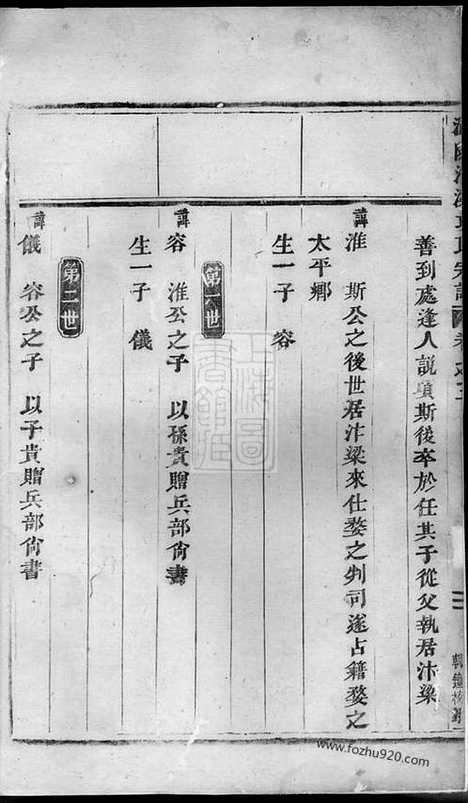 善到處逢人說項斯後卒於任其子從父執居汴梁
諱淮 斯公之後世居汴梁來仕婺之判司遂占籍婺之
太平鄉
生一子 容
第一世
諱容 淮公之子 以孫貴贈兵部尙書
生一子 儀
第二世
諱儀 容公之子 以子貴贈兵部尙書
上海圖書館藏
www.fozhu920.com